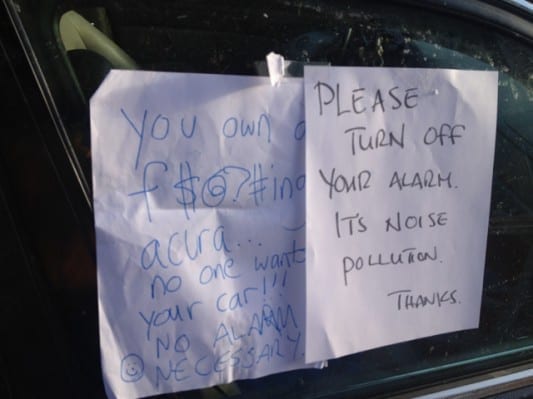 You own a
f$@?#ing
acura...
no one wants
your car!!!
NO ALARM
NECESSARY.
PLEASE
TURN OFF
YOUR ALARM.
IT'S NOISE
POLLUTION.
THANKS.